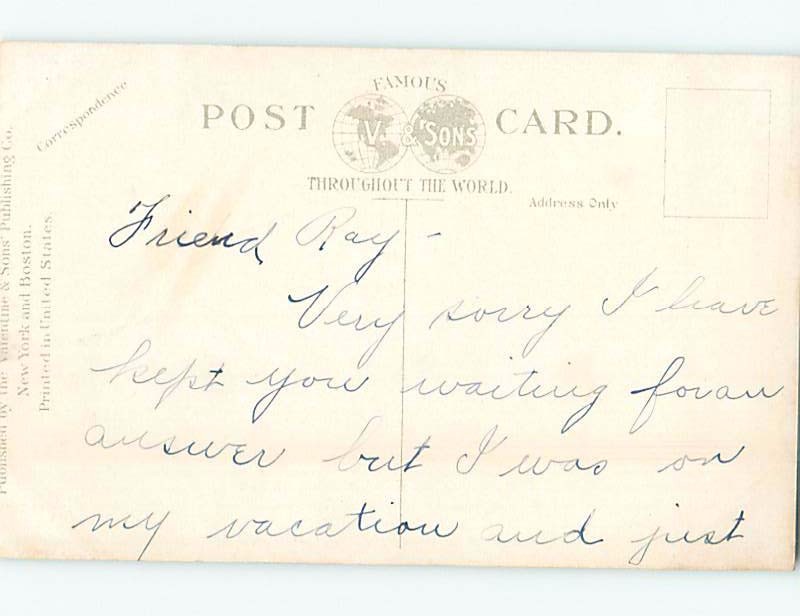 Correspondence
FAMOUS
POST CARD.
V. & SONS
THROUGHOUT THE WORLD.
Address Only
Published by the Valentine & Sons' Publishing Co.
New York and Boston.
Printed in United States.
Friend Ray -
Very sorry I have
kept you waiting for an
answer but I was on
my vacation and just